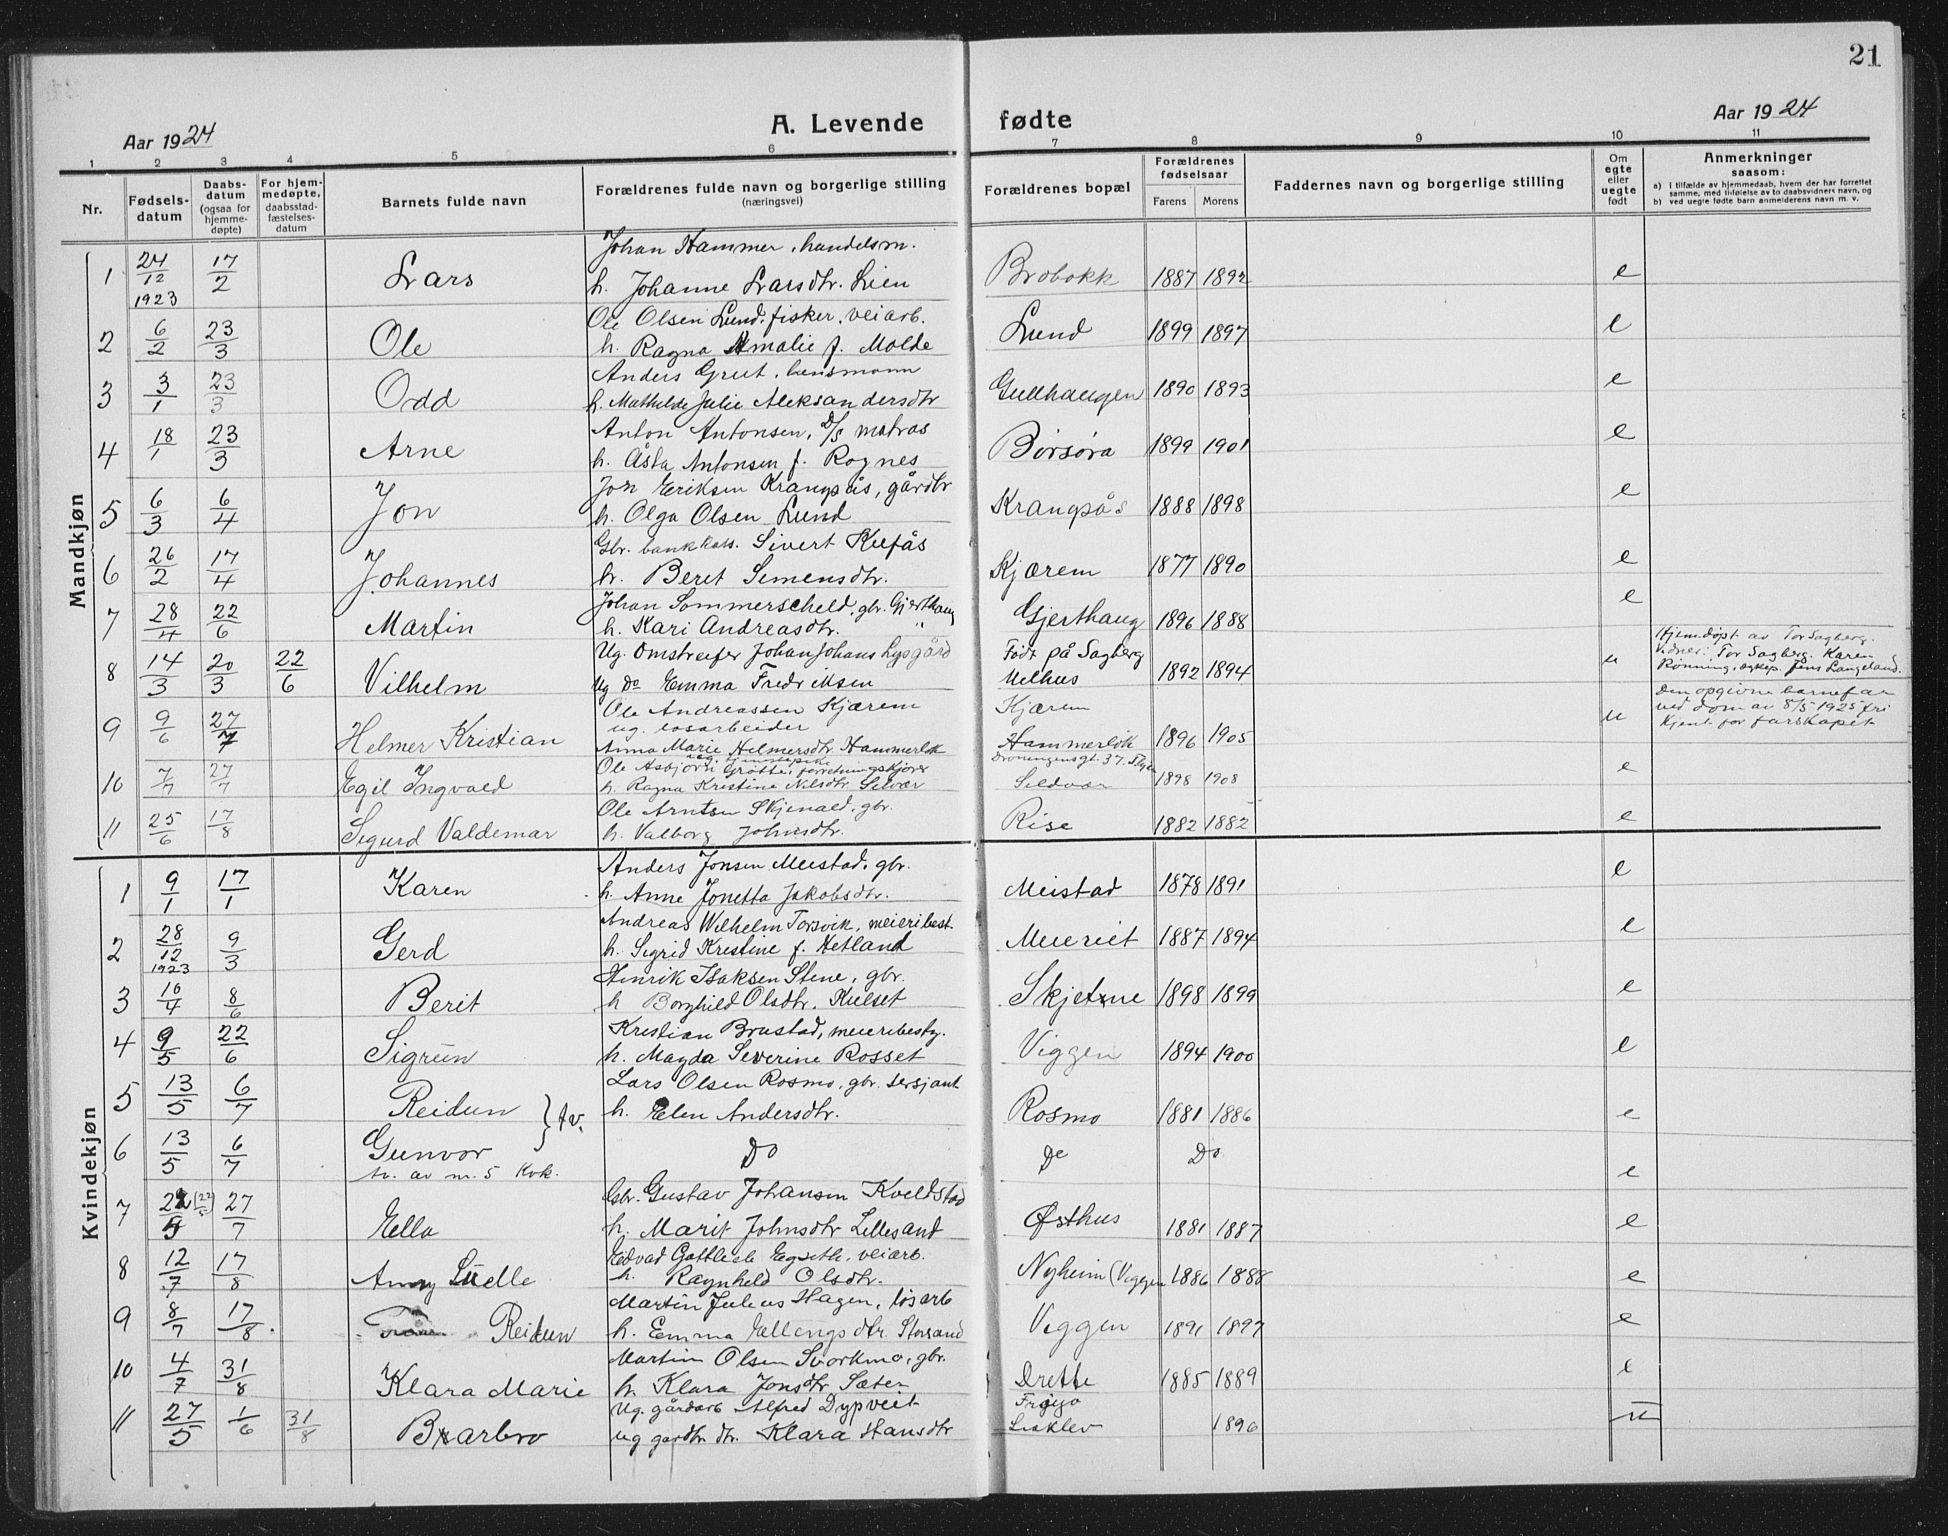 21
Aar 1924
A. Levende fødte
Aar 1924
1 2 3 4 5 6 7 8 9 10 11
Nr.
Fødsels-
datum
Daabs-
datum
(ogsaa for
hjemme-
døpte)
For hjem-
medøpte,
daabsstad-
fæstelses-
datum
Barnets fulde navn
Forældrenes fulde navn og borgerlige stilling
(næringsvei)
Forældrenes bopæl
Forældrenes
fødselsaar
Farens Morens
Faddernes navn og borgerlige stilling
Om
egte
eller
uegte
født
Anmerkninger
saasom:
a) I tilfælde av hjemmedaab, hvem der har forrettet
samme, med tilføielse av to daabsvidners navn, og
b) ved uegte fødte barn anmelderens navn m. v.
Mandkjøn
Johan Hammer, handelsm.
1 24/12 1923 17/2 Lars h. Johanne Larsdtr. Lien Brobakk 1887 1892 e
Ole Olsen Lund, fisker, veiarb.
2 6/2 23/3 Ole h. Ragna Amalie f. Molde Lund 1899 1897 e
Anders Grut, lensmann
3 3/1 23/3 Odd h. Mathilde Julie Aleksandersdtr Gullhaugen 1890 1893 e
Anton Antonsen, D/S matros
4 18/1 23/3 Arne h. Åsta Antonsen f. Rognes Børsøra 1899 1901 e
Jon Eriksen Krangsås, gårdbr
5 6/3 6/4 Jon h. Olga Olsen Lund Krangsås 1888 1898 e
Gbr. bankkass. Sivert Kufås
6 26/2 17/4 Johannes h. Beret Simensdtr. Kjærem 1877 1890 e
Johan Sommerscheld, gbr. Gjerthaug
7 28/4 22/6 Martin h. Kari Andreasdtr. " Gjerthaug 1896 1888 e
Ug. Omstreifer Johan Johans Lysgård Født på Sagberg
8 14/3 20/3 22/6 Vilhelm Ug Do Emma Fredriksen Melhus 1892 1894 u
Hjem.døpt av Tor Sagberg.
Vidner: Tor Sagberg. Karen
Rønning, Jens Langeland.
Ole Andreassen Kjærem Kjærem
ug. løsarbeider
9 9/6 27/7 Helmer Kristian Anna Marie Helmersdtr Hammerløk Hammerløk 1896 1905 u
ug. tjenestepike
Den opgivne barnefar
ved dom av 8/5 1925 fri
kjent for farskapet
Ole Asbjørn Grøtte, forretningskjører Dronningensgt. 37.
10 7/7 27/7 Egil Ingvald h. Ragna Kristine Nilsdtr Selvær Seldvær 1898 1908 e
Ole Arntsen Skjenald, gbr.
11 25/6 17/8 Sigurd Valdemar h. Valborg Johnsdtr. Rise 1882 1882 e
Kvindekjøn
Anders Jonsen Meistad, gbr.
1 9/1 17/1 Karen h. Anne Jonetta Jakobsdtr. Meistad 1878 1891 e
Andreas Wilhelm Torsvik, meieribest.
2 28/12 1923 9/3 Gerd h. Sigrid Kristine f. Hetland Meieriet 1887 1894 e
Henrik Isaksen Stene, gbr.
3 10/4 8/6 Berit h Borghild Olsdtr. Kulset Skjetne 1898 1899 e
Kristian Brustad, meieribesty.
4 9/5 22/6 Sigrun h. Magda Severine Rosset Viggen 1894 1900 e
Lars Olsen Rosmo, gbr. sersjant
5 13/5 6/7 Reidun } tv. h. Elen Andersdtr. Rosmo 1881 1886 e
6 13/5 6/7 Gunvor Do Do Do e
tv. av nr. 5 Kvk.
Gbr. Gustav Johansen Kveldstad
7 22/5 (22/5) 27/7 Ella h. Marit Johnsdtr Lillesand Østhus 1881 1887 e
Edvad Gottlieb Egseth, veiarb.
8 12/7 17/8 Anny Lüelle h. Ragnhild Olsdtr. Nyheim (Viggen 1886 1888 e
Martin Julius Hagen, løsarb
9 8/7 17/8. Reidun h. Emma Ellingsdtr. Storsand Viggen 1891 1897 e
Martin Olsen Svorkmo, gbr.
10 4/7 31/8 Klara Marie h. Klara Jonsdtr Sæter Drette 1885 1889 e
Ug. gårdarb Alfred Dypveit
11 27/5 1/6 31/8 Barbro ug gardbr dtr. Klara Hansdtr Lisklev 1896 u